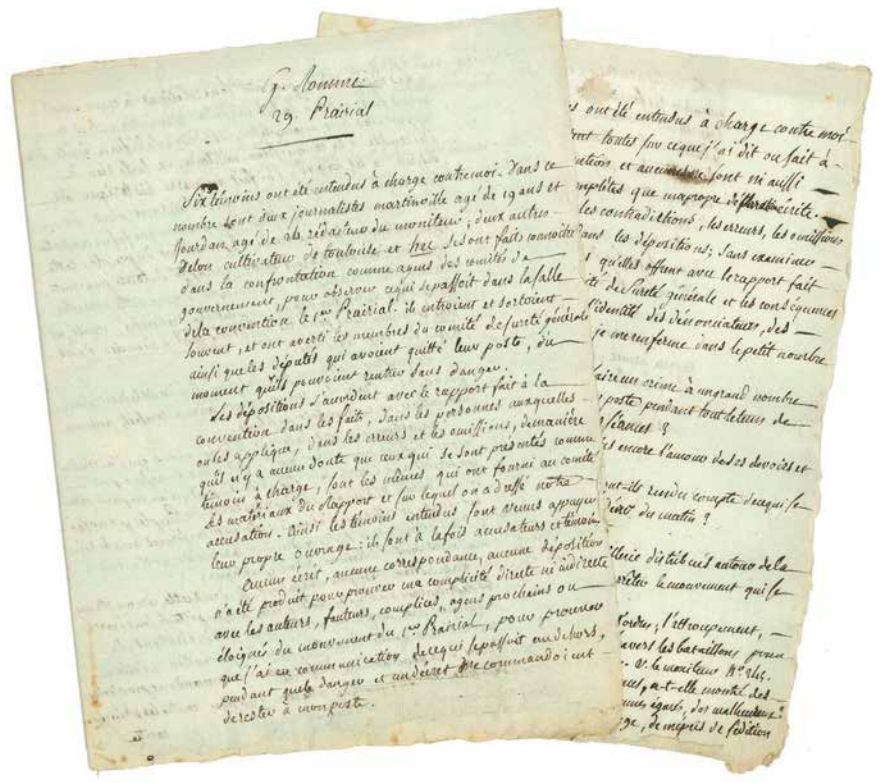 G. Romme
29. Prairial
Six témoins ont été entendus à charge contre moi. Dans ce
nombre sont deux journalistes martinville agé de 19 ans et
Jourdan, agé de 26 rédacteur du moniteur; deux autres
Delon cultivateur de toulouse et se sont fait connoître
dans la confrontation comme agens des comités de
gouvernement, pour observer ce qui se passoit dans la salle
de la convention le 1er Prairial. ils entroient et sortoient
souvent, et ont averti les membres du comité de sureté générale
ainsi que les députés qui avoient quitté leur poste, du
moment qu'ils pouvoient rentrer sans danger.
Les dépositions s'accordent avec le rapport fait à la
convention dans les faits, dans les personnes auxquelles
on les applique, dans les erreurs et les omissions, de manière
qu'il n'y a aucun doute que ceux qui se sont présentés comme
témoins à charge, sont les mêmes qui ont fourni au comité
les matériaux du Rapport et sur lequel on a dressé notre
accusation. Ainsi les témoins entendus sont venus appuyer
leur propre ouvrage: ils sont à la fois accusateurs et témoins
Aucun écrit, aucune correspondance, aucune déposition
n'a été produit pour prouver ma complicité directe ni indirecte
avec les auteurs, fauteurs, complices, agens prochains ou
éloignés du mouvement du 1er Prairial, pour prouver
que j'ai eu communication de ce qui se passoit au dehors,
pendant que le danger et un décret me commandoient
de rester à mon poste.
s ont été entendus à charge contre moi
toutes sur ce que j'ai dit ou fait à
et aucune sont ni aussi
que ma propre
les contradictions, les erreurs, les omissions
dans les dépositions; sans examiner
qu'elles offrent avec le rapport fait
té de Sureté générale et les conséquences
l'identité des dénonciateurs, des
je me renferme dans le petit nombre
faire un crime à un grand nombre
poste pendant tout le tems de
séances ?
encore l'amour de ses devoirs et
ont-ils rendu compte de ce qui se
du matin ?
distribués autour de la
arrêter le mouvement qui se
l'attroupement,
travers les bataillons pour
V. le moniteur N° 245.
a-t-elle montré des
égarés, des malheureux
de mépris de sédition